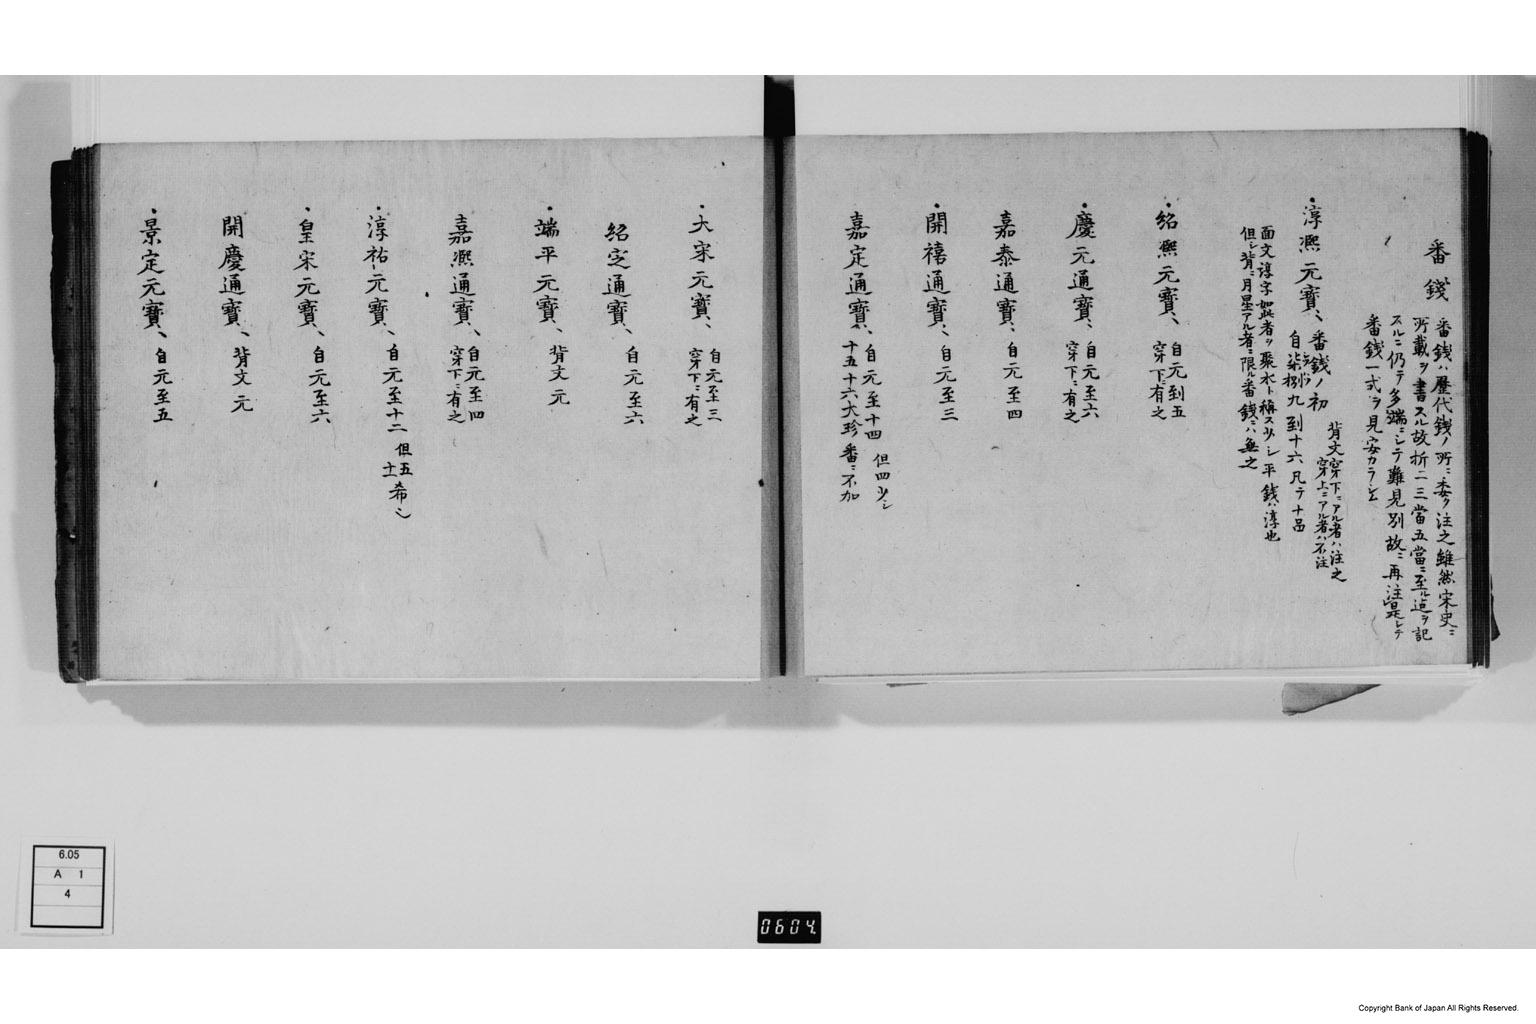 番錢
番錢ハ歴代錢ノ所ニ委ク注之雖然宋史ニ
所載ヲ書スル故折二三當五當ニ至ル迄ヲ記
スルニ仍テ多端ニシテ難見別故ニ再注是シテ
番錢一式ヲ見安カラシム
淳熙元寳、番錢ノ初
背文穿下ニアル者ハ注之
穿上ニアル者ハ不注
自柒捌九到十六凡テ十品
面文淳字如此者ヲ聚水ト稱ス少シ平錢ハ淳也
但シ背ニ月星アル者ニ限ル番錢ニハ無之
紹熙元寳、自元到五
穿下ニ有之
慶元通寳、自元至六
穿下ニ有之
嘉泰通寳、自元至四
開禧通寳、自元至三
嘉定通寳、自元至十四 但四少シ
十五十六大珍番ニ不加
大宋元寳、自元至三
穿下ニ有之
紹定通寳、自元至六
端平元寳、背文元
嘉熙通寳、自元至四
穿下ニ有之
淳祐元寳、自元至十二 但五十一希シ
皇宋元寳、自元至六
開慶通寳、背文元
景定元寳、自元至五
6.05
A 1
4
0604.
Copyright Bank of Japan All Rights Reserved.